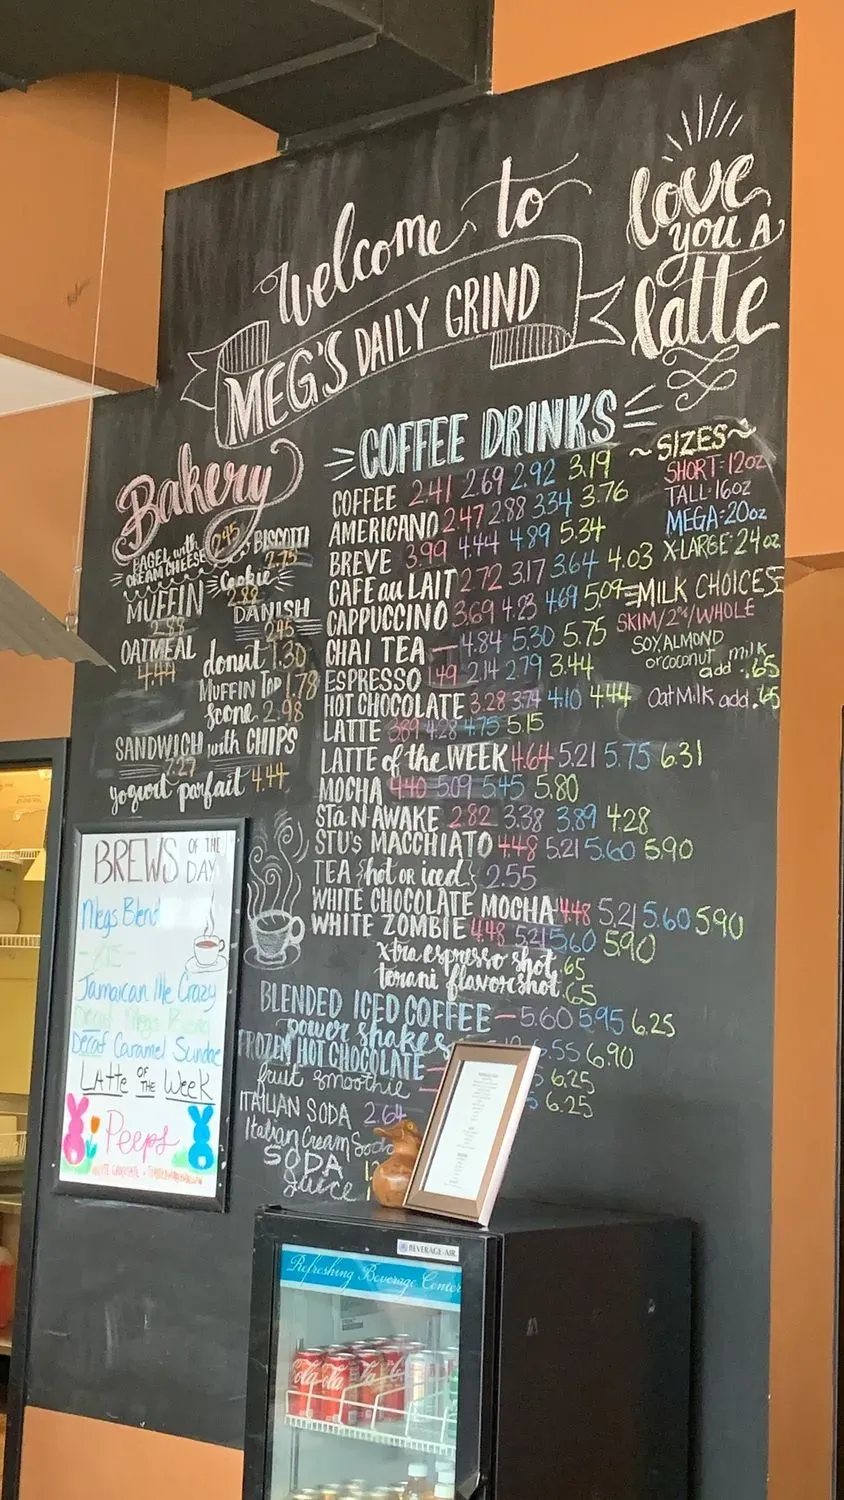 welcome to
MEG'S DAILY GRIND
love
you A
latte
Bakery
BAGEL with
CREAM CHEESE 2.95
BISCOTTI
2.75
Cookie
2.88
MUFFIN
2.88
DANISH
2.95
OATMEAL
4.44
donut 1.30
MUFFIN TOP 1.78
scone 2.98
SANDWICH with CHIPS
7.27
yogurt parfait 4.44
COFFEE DRINKS
COFFEE 2.41 2.69 2.92 3.19
AMERICANO 2.47 2.88 3.34 3.76
BREVE 3.99 4.44 4.89 5.34
CAFE au LAIT 2.72 3.17 3.64 4.03
CAPPUCCINO 3.69 4.23 4.69 5.09
CHAI TEA — 4.84 5.30 5.75
ESPRESSO 1.49 2.14 2.79 3.44
HOT CHOCOLATE 3.28 3.74 4.10 4.44
LATTE 3.89 4.28 4.75 5.15
LATTE of the WEEK 4.64 5.21 5.75 6.31
MOCHA 4.40 5.09 5.45 5.80
Sta N AWAKE 2.82 3.38 3.89 4.28
STU'S MACCHIATO 4.48 5.21 5.60 5.90
TEA {hot OR iced} 2.55
WHITE CHOCOLATE MOCHA 4.48 5.21 5.60 5.90
WHITE ZOMBIE 4.48 5.21 5.60 5.90
xtra espresso shot .65
torani flavor shot .65
BLENDED ICED COFFEE — 5.60 5.95 6.25
power shakes 5.55 6.90
FROZEN HOT CHOCOLATE 6.25
fruit smoothie 6.25
ITALIAN SODA 2.64
Italian Cream Soda
SODA
Juice
~SIZES~
SHORT-12oz
TALL-16oz
MEGA-20oz
X-LARGE-24oz
MILK CHOICES
SKIM/2%/WHOLE
SOY, ALMOND
or coconut milk
add .65
Oat Milk add .65
BREWS OF THE DAY
Megs Blend
Jamaican Me Crazy
Decaf Megs Blend
Decaf Caramel Sundae
LATTE OF THE WEEK
Peeps
WHITE CHOCOLATE +
BEVERAGE-AIR
Refreshing Beverage Center
Cola